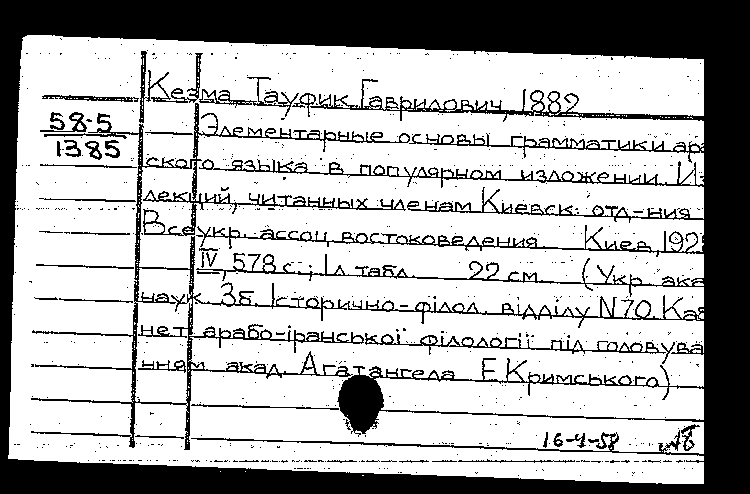 Кезма, Тауфик Гаврилович, 1882
58-5
1385
Элементарные основы грамматики ара
ского языка в популярном изложении. Из
лекций, читанных членам Киевск. отд-ния
Всеукр. ассоц. востоковедения. Киев, 192
IV, 578 с.; 1 л табл. 22 см. (Укр. ака
наук. Зб. Iсторично-фiлол. вiддiлу N 70. Каб
нет арабо-iранської фiлологiї пiд головува
нням акад. Агатангела Е. Кримського)
16-4-58 №8